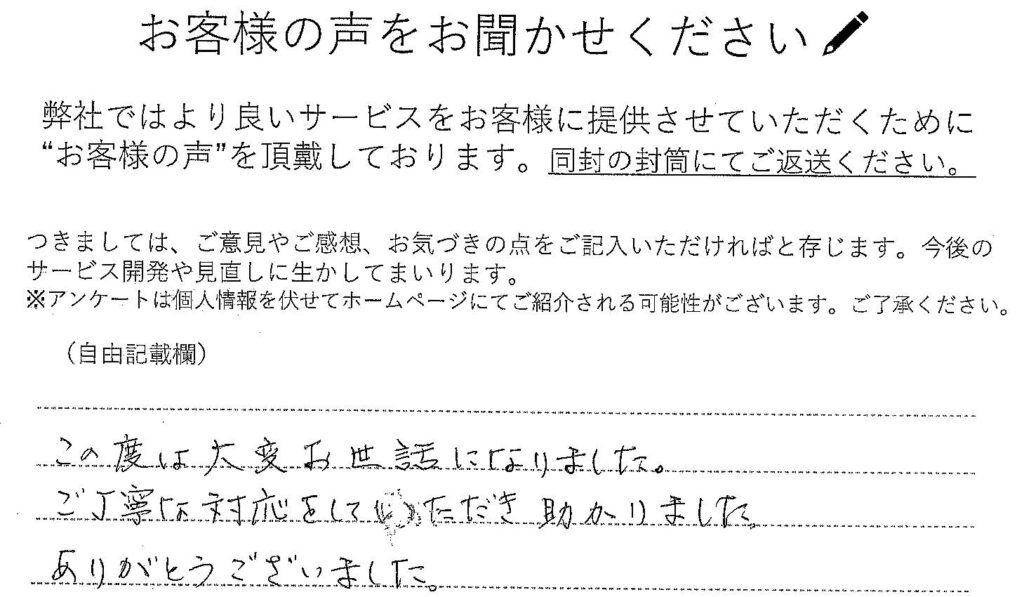 お客様の声をお聞かせください
弊社ではより良いサービスをお客様に提供させていただくために
“お客様の声”を頂戴しております。同封の封筒にてご返送ください。
つきましては、ご意見やご感想、お気づきの点をご記入いただければと存じます。今後の
サービス開発や見直しに生かしてまいります。
※アンケートは個人情報を伏せてホームページにてご紹介される可能性がございます。ご了承ください。
（自由記載欄）
この度は大変お世話になりました。
ご丁寧な対応をしていただき助かりました。
ありがとうございました。